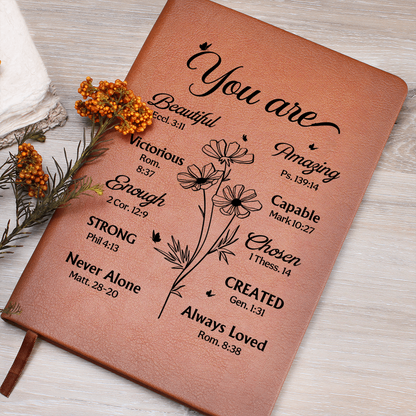 You are
Beautiful
Eccl. 3:11
Amazing
Ps. 139:14
Victorious
Rom.
8:37
Capable
Mark 10:27
Enough
2 Cor. 12:9
Chosen
1 Thess. 14
STRONG
Phil 4:13
CREATED
Gen. 1:31
Never Alone
Matt. 28-20
Always Loved
Rom. 8:38